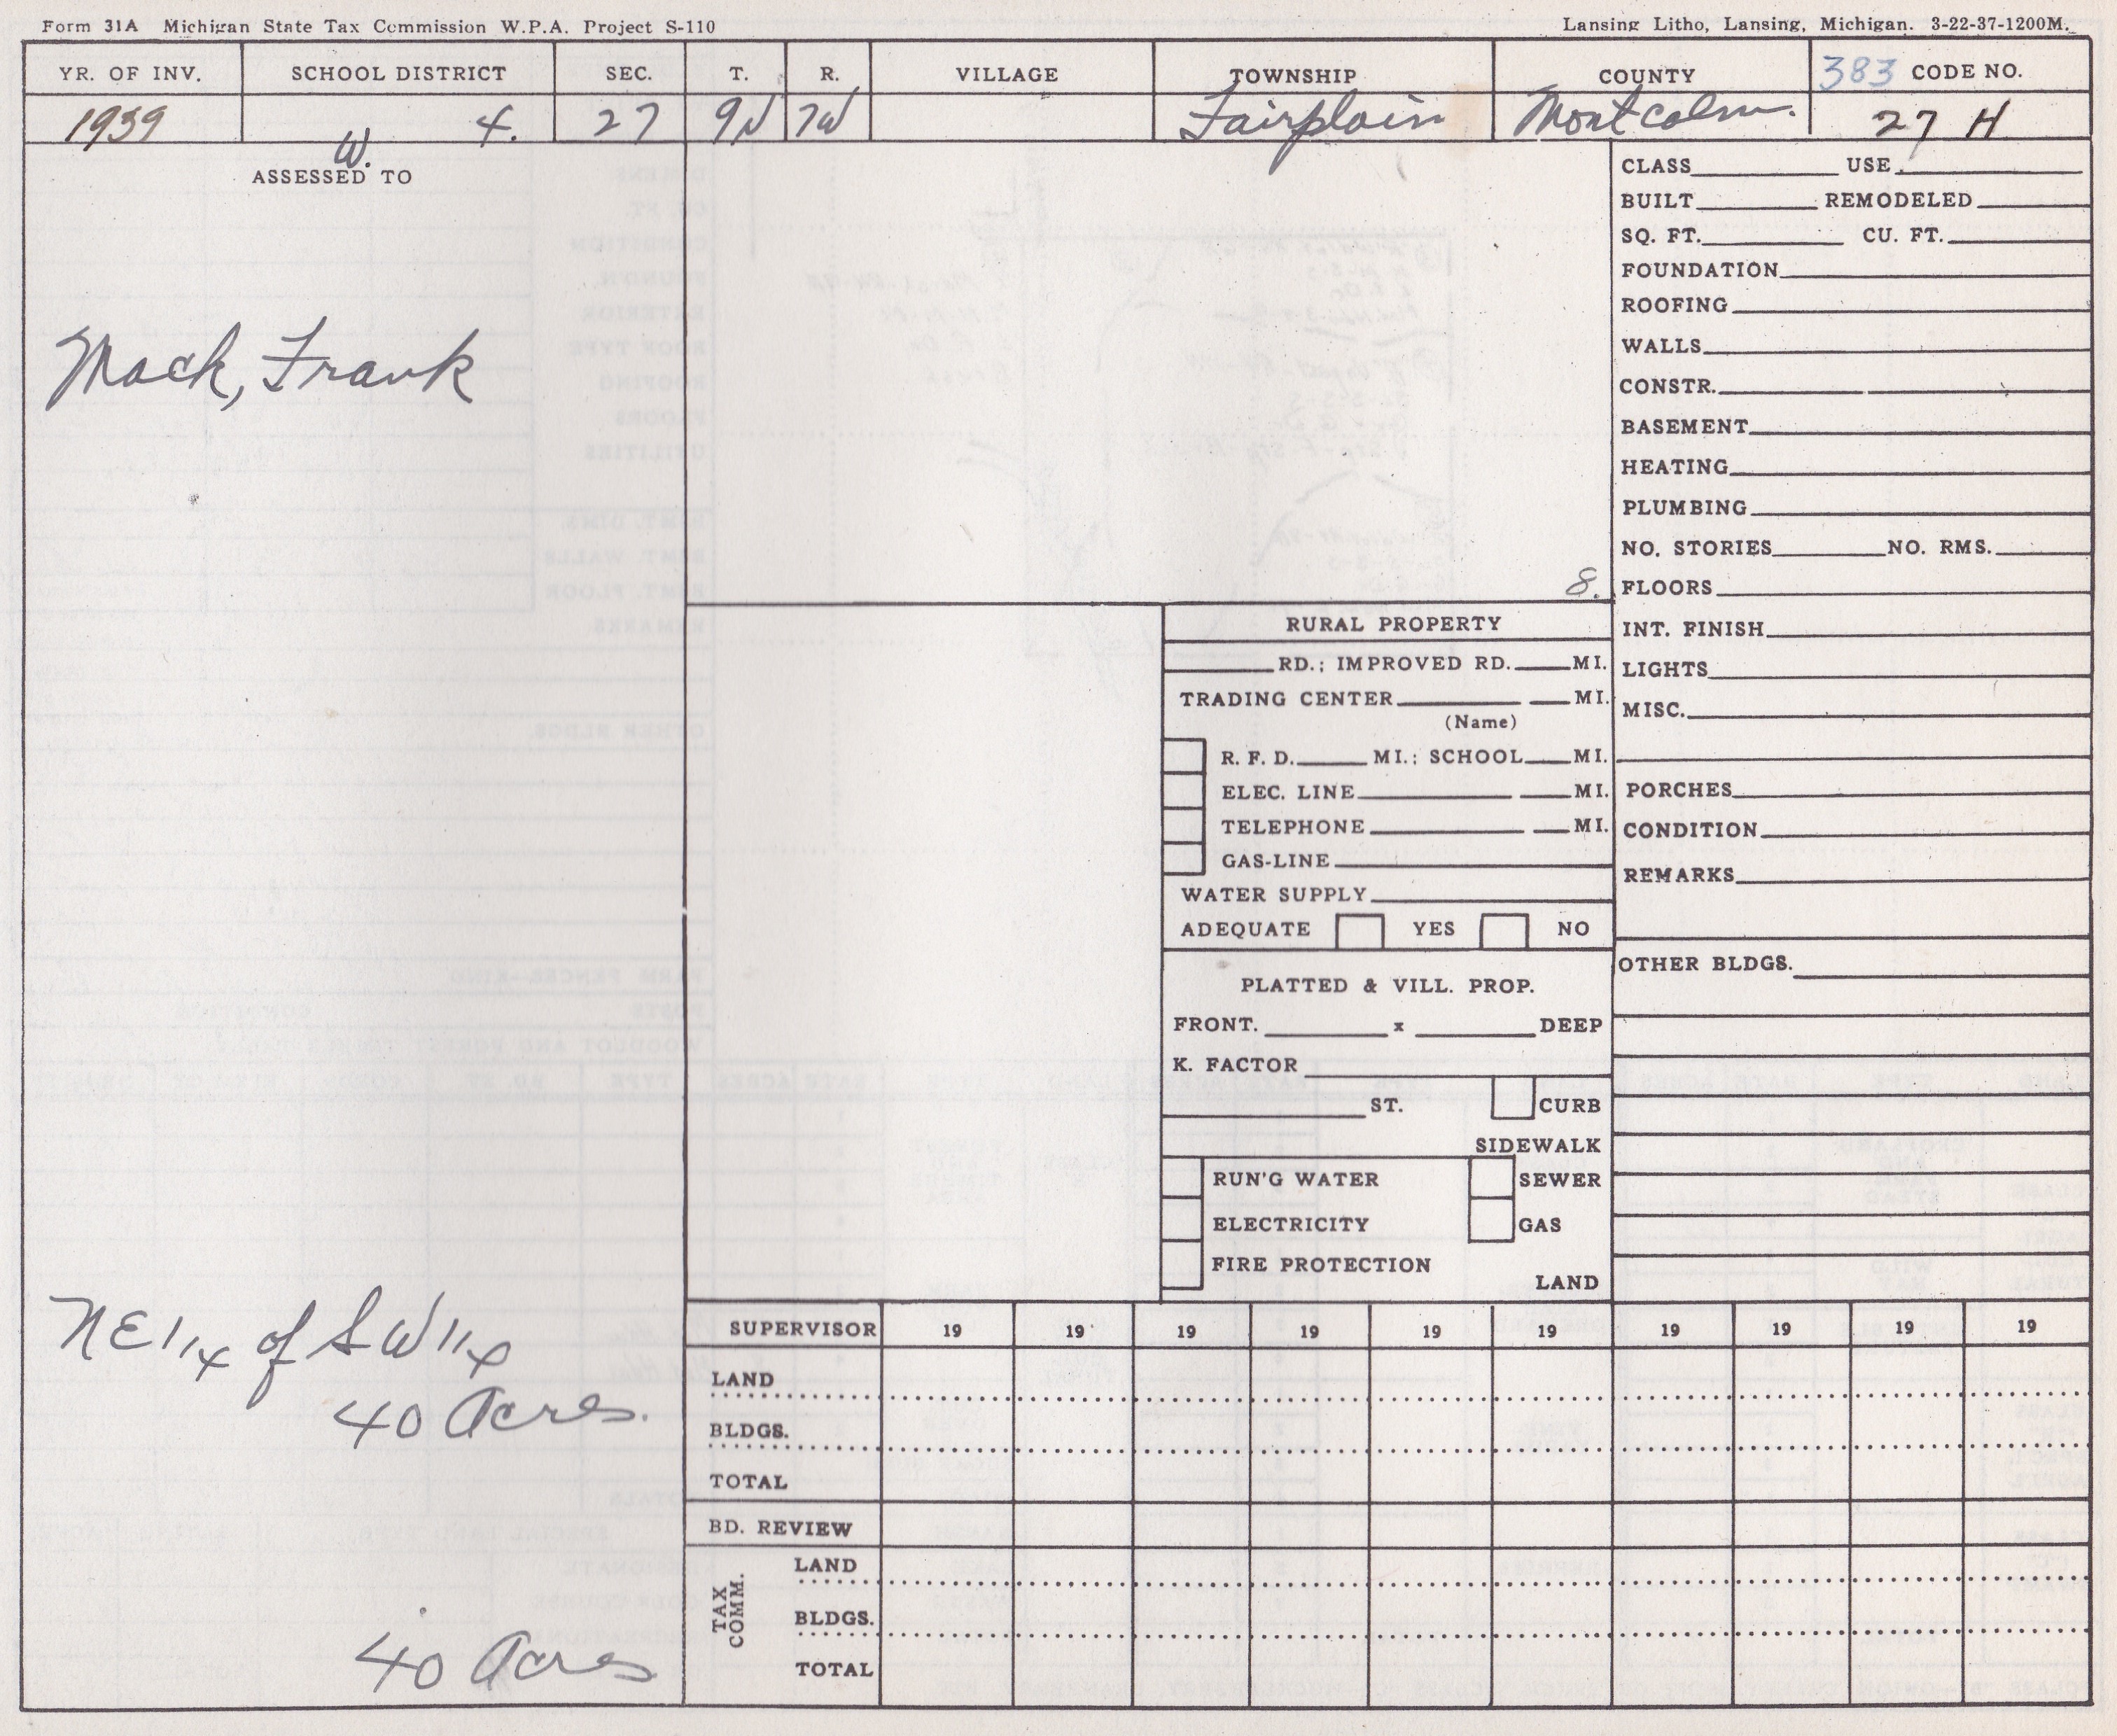 Form 31A Michigan State Tax Commission W.P.A. Project S-110
Lansing Litho, Lansing, Michigan. 3-22-37-1200M.
YR. OF INV. SCHOOL DISTRICT SEC. T. R. VILLAGE TOWNSHIP COUNTY 383 CODE NO.
1939 W. 4. 27 9N 7W Fairplain Montcalm. 27 H
ASSESSED TO
Mack, Frank
NE 1/4 of SW 1/4
40 Acres.
40 Acres
8.
RURAL PROPERTY
RD.; IMPROVED RD. MI.
TRADING CENTER MI.
(Name)
R. F. D. MI.; SCHOOL MI.
ELEC. LINE MI.
TELEPHONE MI.
GAS-LINE
WATER SUPPLY
ADEQUATE YES NO
PLATTED & VILL. PROP.
FRONT. x DEEP
K. FACTOR
ST. CURB
SIDEWALK
RUN'G WATER SEWER
ELECTRICITY GAS
FIRE PROTECTION
LAND
CLASS USE
BUILT REMODELED
SQ. FT. CU. FT.
FOUNDATION
ROOFING
WALLS
CONSTR.
BASEMENT
HEATING
PLUMBING
NO. STORIES NO. RMS.
FLOORS
INT. FINISH
LIGHTS
MISC.
PORCHES
CONDITION
REMARKS
OTHER BLDGS.
SUPERVISOR 19 19 19 19 19 19 19 19 19 19
LAND
BLDGS.
TOTAL
BD. REVIEW
TAX COMM.
LAND
BLDGS.
TOTAL